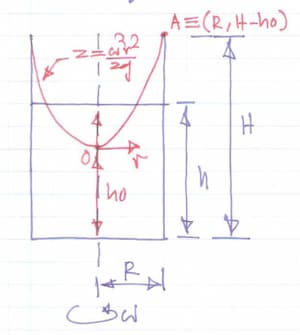 A≡(R, H-h0)
z=ω²r²/2g
O
r
h0
h
H
R
ω